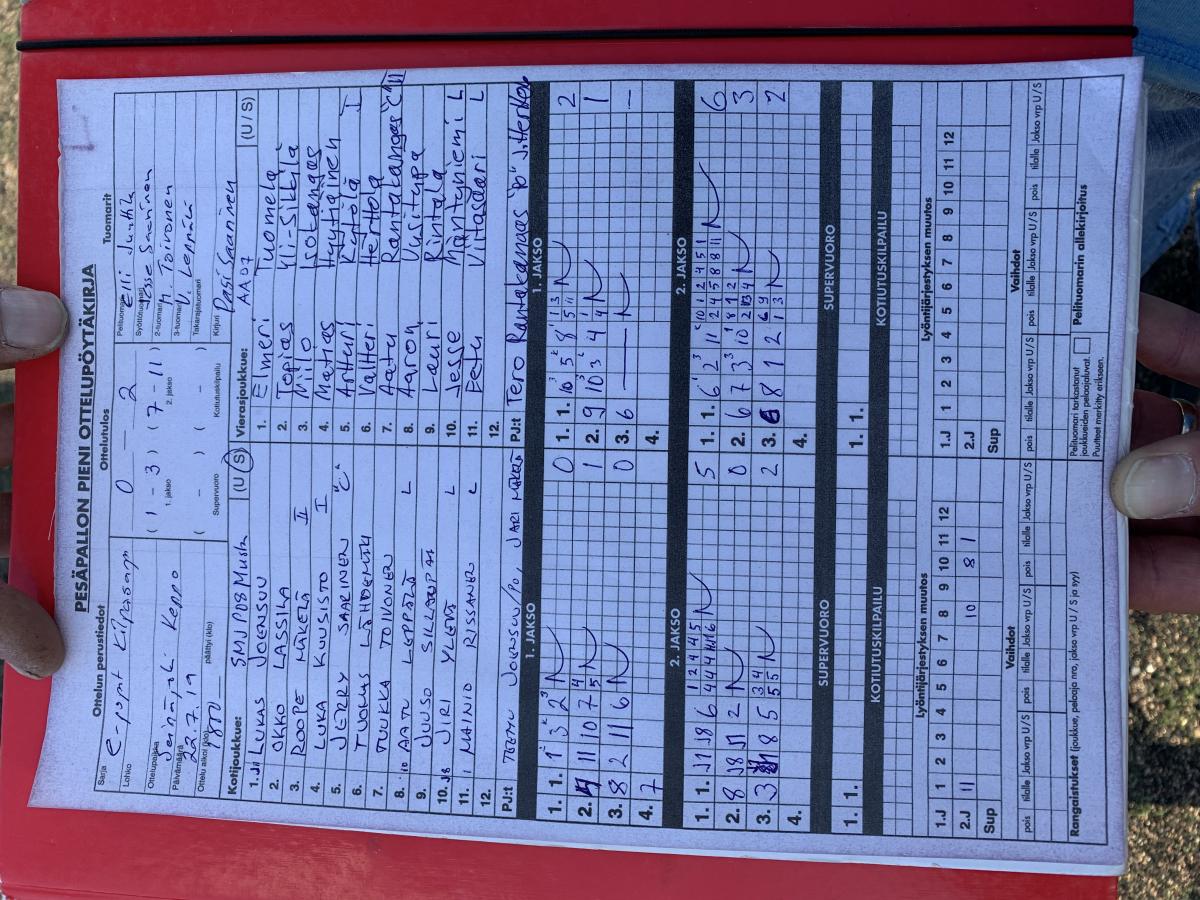 PESÄPALLON PIENI OTTELUPÖYTÄKIRJA
Ottelun perustiedot
Ottelutulos
Tuomarit
Sarja
e-pojat Kilpasarja
Lohko
Ottelupaikka
Seinäjoki Keppo
Päivämäärä
22.7.19
Ottelu alkoi (klo) päättyi (klo)
1800
0 – 2
( 1 – 3 ) ( 7 – 11 )
1. jakso 2. jakso
( – ) ( – )
Supervuoro Kotiutuskilpailu
Pelituomari
Syöttötuomari
Jesse Saarinen
2-tuomari
M. Toivonen
3-tuomari
V. Leppälä
Takarajatuomari
Kirjuri Pasi Saarinen
Kotijoukkue: SMJ P08 Musta (U / S)
1. J1 LUKAS JOENSUU
2. OKKO LASSILA
3. ROOPE MÄKELÄ II
4. LUKA KUUSISTO I
5. JERRY SAARINEN "C"
6. TUOMAS LÄHDEMÄKI
7. TUUKKA TOIVONEN
8. 10 AATU LEPPÄLÄ L
9. JUUSO
10. J8 JIRI YLEVÄ L
11. 1 MAINIO RISSANEN L
12.
PJ:t TEEMU JOENSUU/PO, JARI MÄKELÄ
Vierasjoukkue: AA07 (U / S)
1. Elmeri Tuomela
2. Topias Yli-Sikkilä
3. Niilo Isokangas
4. Matias Hyytiäinen
5. Artturi Kytölä I
6. Valtteri Herttola
7. Aatu Rantakangas "C" II
8. Aaron Uusitupa
9. Lauri Rintala
10. Jesse Mäntyniemi L
11. Eetu Viitasaari L
12.
PJ:t Tero Rantakangas "PO" J. Herttola
1. JAKSO
1. 1. 1 3 2 0
2. 4 11 10 7 1
3. 8 2 11 6 0
4. 7
1. JAKSO
1. 1. 10 5 8 2
2. 9 10 3 4 1
3. 6 –
4.
2. JAKSO
1. 1. J1 J8 6 5
2. 8 J8 J1 2 0
3. 3 8 5 2
4.
2. JAKSO
1. 1. 6 2 11 6
2. 6 7 3 10 3
3. 8 1 2 2
4.
SUPERVUORO
1. 1.
SUPERVUORO
1. 1.
KOTIUTUSKILPAILU
KOTIUTUSKILPAILU
Lyöntijärjestyksen muutos
1.J 1 2 3 4 5 6 7 8 9 10 11 12
2.J 11 10 8 1
Sup
Lyöntijärjestyksen muutos
1.J 1 2 3 4 5 6 7 8 9 10 11 12
2.J
Sup
Vaihdot
pois tilalle Jakso vrp U / S pois tilalle Jakso vrp U / S pois tilalle Jakso vrp U / S
Vaihdot
pois tilalle Jakso vrp U / S pois tilalle Jakso vrp U / S pois tilalle Jakso vrp U / S
Rangaistukset (joukkue, pelaaja nro, jakso vrp U / S ja syy)
Pelituomari tarkastanut
joukkueiden pelaajaluvat.
Puutteet merkitty erikseen.
Pelituomarin allekirjoitus